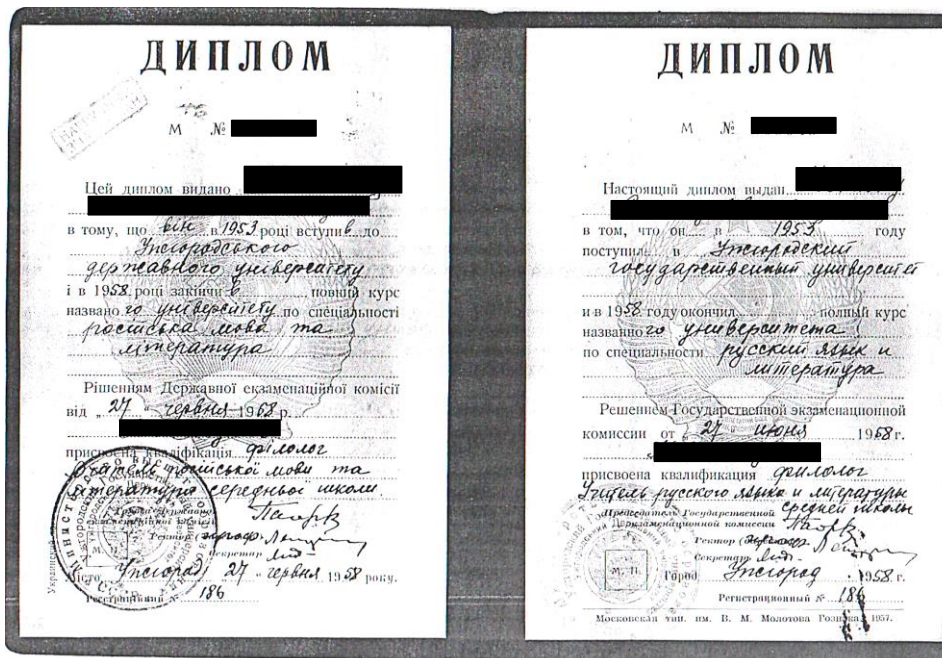 ДИПЛОМ
М №
Цей диплом видано
в тому, що він в 1953 році вступив до
Ужгородського
державного університету
і в 1958 році закінчив повний курс
названого університету по спеціальності
російська мова та
література
Рішенням Державної екзаменаційної комісії
від „27“ червня 1958 р.
присвоєна кваліфікація філолог
Вчитель російської мови та
літератури середньої школи.
Голова Державної
екзаменаційної комісії
Ректор
Секретар
Місто Ужгород, 27 „ червня 1958 року.
Реєстраційний № 186
ДИПЛОМ
М №
Настоящий диплом выдан
в том, что он в 1953 году
поступил в Ужгородский
государственный университет
и в 1958 году окончил полный курс
названного университета
по специальности русский язык и
литература
Решением Государственной экзаменационной
комиссии от „27“ июня 1958 г.
присвоена квалификация филолог
Учитель русского языка и литературы
средней школы
Председатель Государственной
экзаменационной комиссии
Ректор
Секретарь
М. П.
Город Ужгород 1958 г.
Регистрационный № 186
Московская тип. им. В. М. Молотова Гознака. 1957.